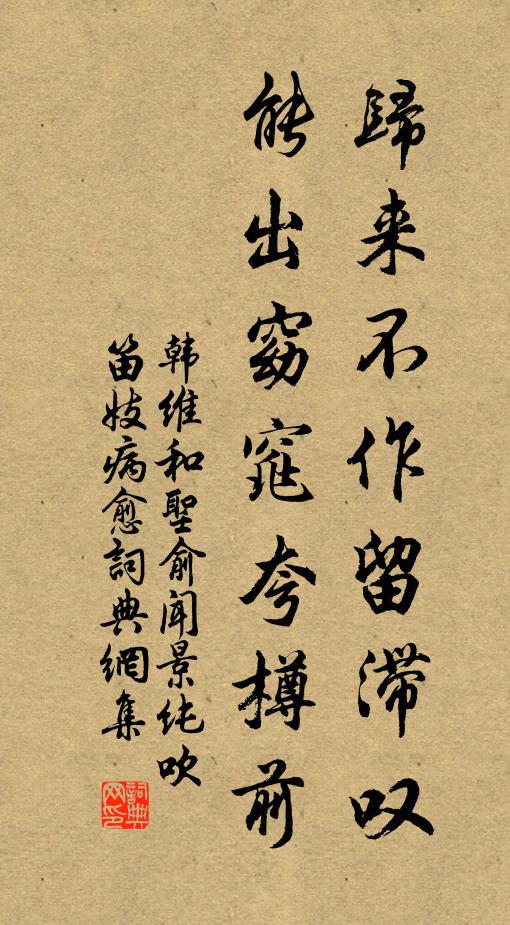 歸来不作留滯叹
能出窈窕夸樽前
韩維和聖俞闻景纯吹
笛妓病愈詞典網集
詞典网印